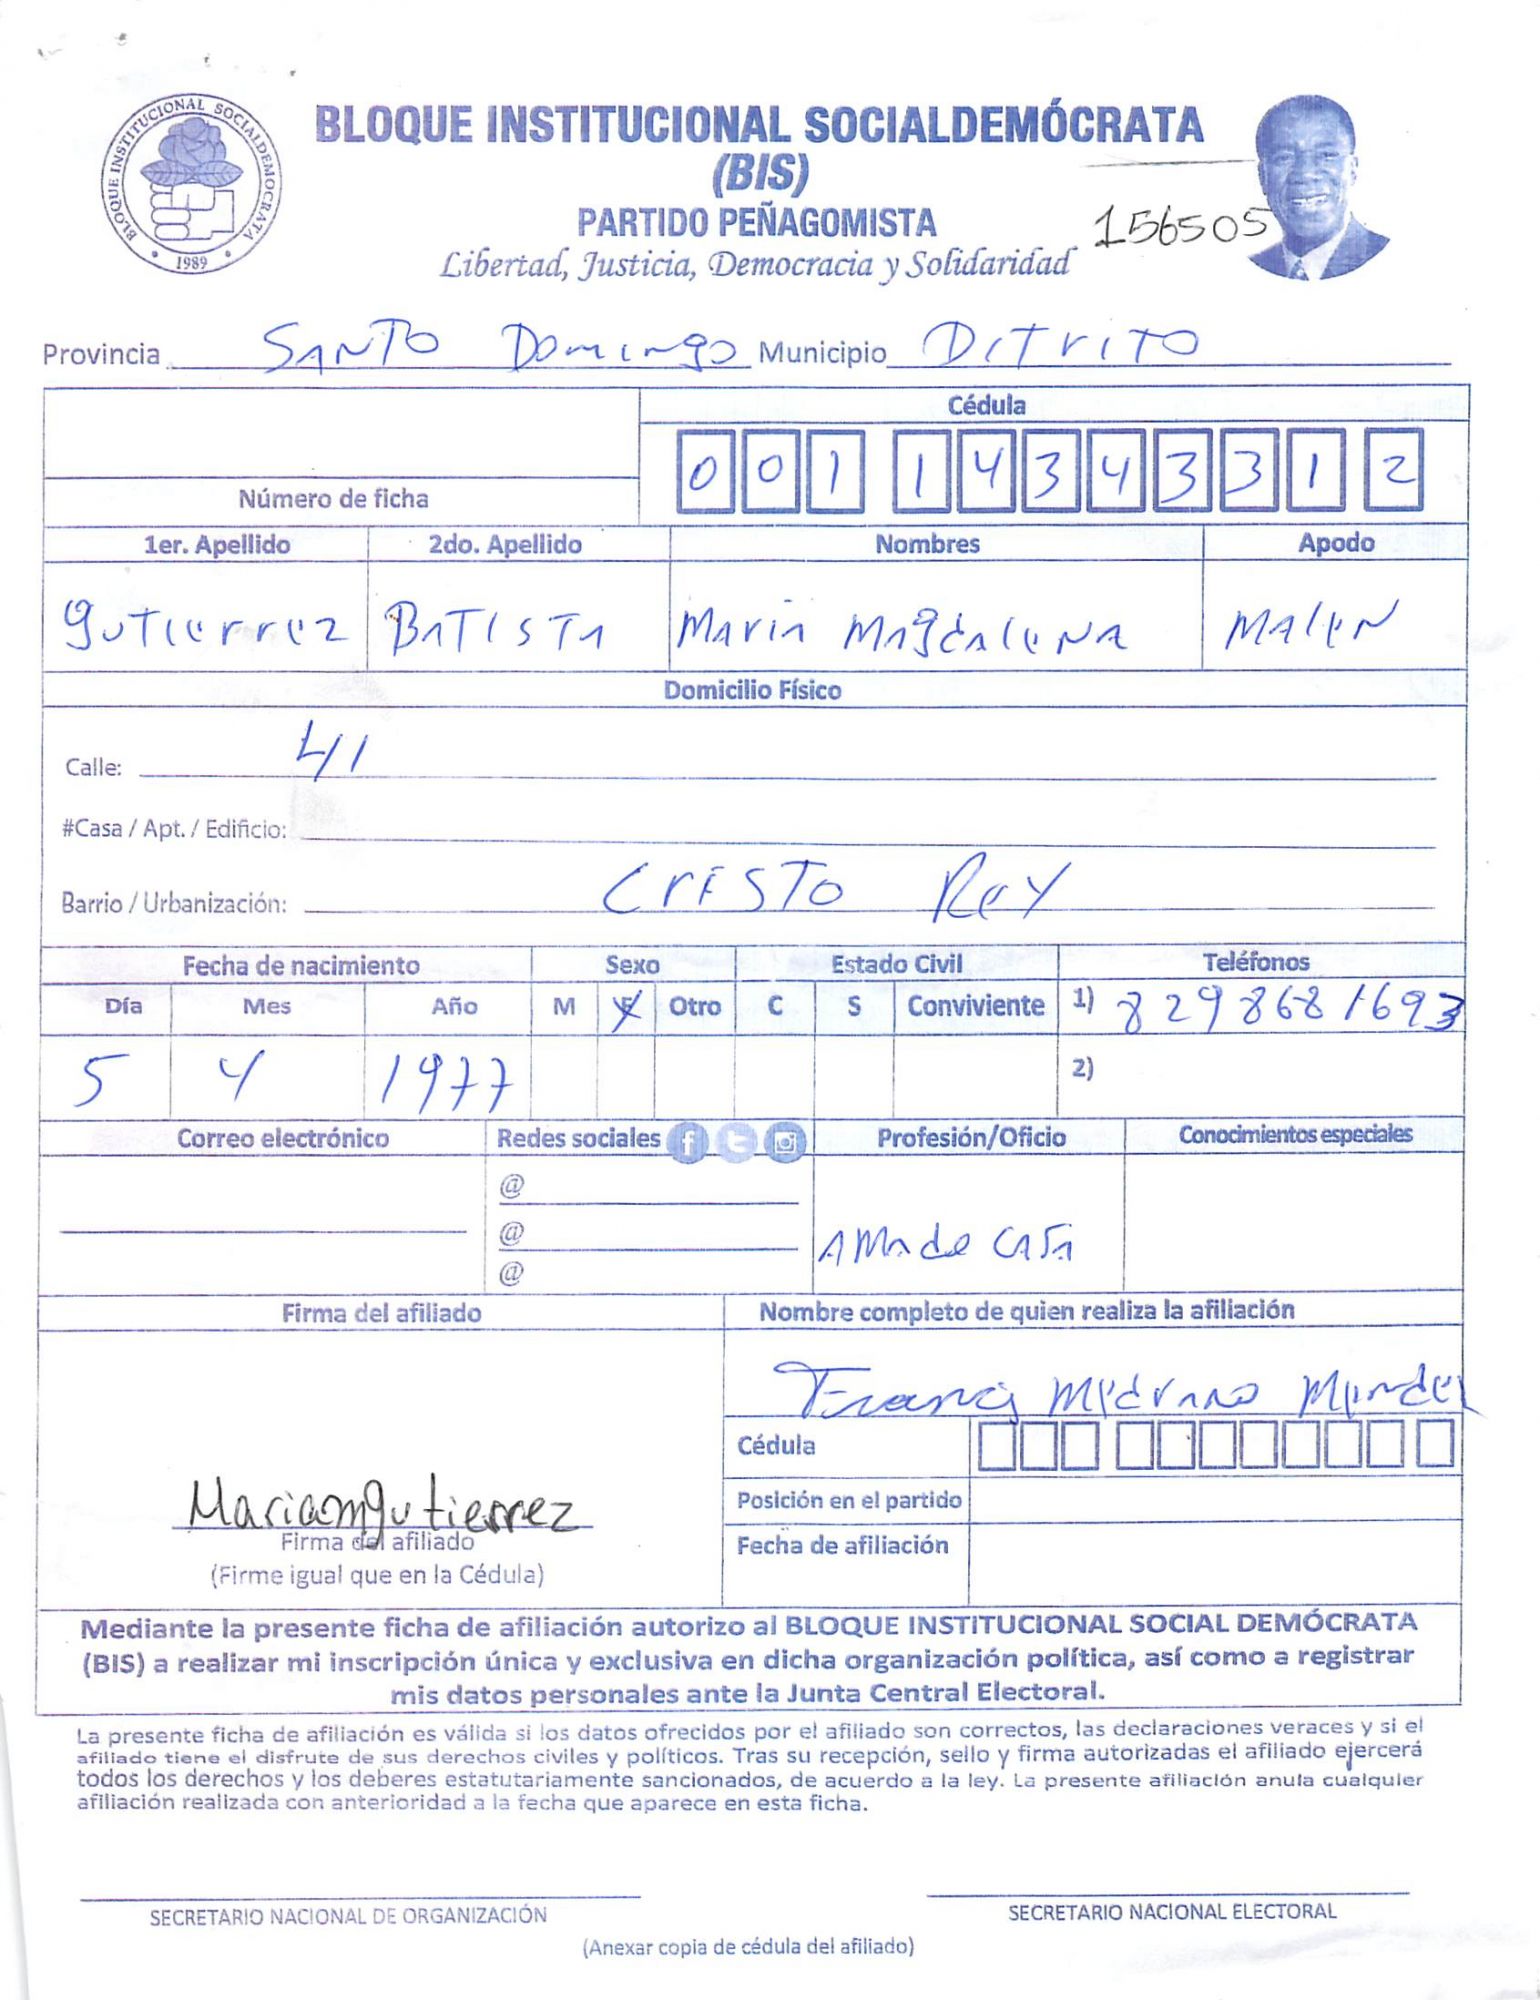 BLOQUE INSTITUCIONAL SOCIALDEMÓCRATA
(BIS)
PARTIDO PEÑAGOMISTA
Libertad, Justicia, Democracia y Solidaridad
BLOQUE INSTITUCIONAL SOCIALDEMOCRATA
1989
156505
Provincia SANTO Domingo Municipio DITrITO
Cédula
001 1434331 2
Número de ficha
1er. Apellido 2do. Apellido Nombres Apodo
gutierrez BATISTA Maria Magdalena MALEN
Domicilio Físico
Calle: 41
#Casa / Apt. / Edificio:
Barrio / Urbanización: CrESTO Rey
Fecha de nacimiento Sexo Estado Civil Teléfonos
Día Mes Año M F Otro C S Conviviente 1) 829 868 1693
5 4 1977 2)
Correo electrónico Redes sociales Profesión/Oficio Conocimientos especiales
@
@
@
AMA de CASA
Firma del afiliado Nombre completo de quien realiza la afiliación
Medrano Mendez
Cédula
Posición en el partido
Fecha de afiliación
Mariamgutierrez
Firma del afiliado
(Firme igual que en la Cédula)
Mediante la presente ficha de afiliación autorizo al BLOQUE INSTITUCIONAL SOCIAL DEMÓCRATA
(BIS) a realizar mi inscripción única y exclusiva en dicha organización política, así como a registrar
mis datos personales ante la Junta Central Electoral.
La presente ficha de afiliación es válida si los datos ofrecidos por el afiliado son correctos, las declaraciones veraces y si el
afiliado tiene el disfrute de sus derechos civiles y políticos. Tras su recepción, sello y firma autorizadas el afiliado ejercerá
todos los derechos y los deberes estatutariamente sancionados, de acuerdo a la ley. La presente afiliación anula cualquier
afiliación realizada con anterioridad a la fecha que aparece en esta ficha.
SECRETARIO NACIONAL DE ORGANIZACIÓN SECRETARIO NACIONAL ELECTORAL
(Anexar copia de cédula del afiliado)